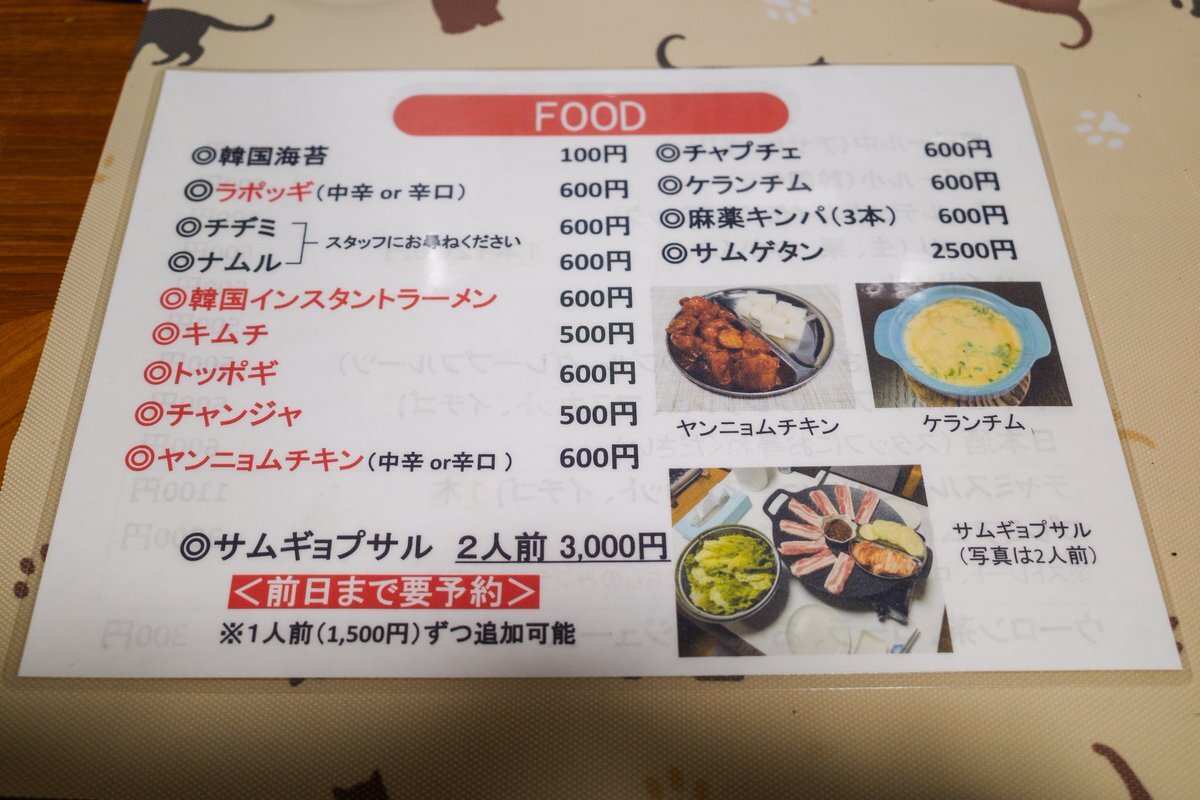 FOOD
◎韓国海苔 100円
◎ラポッギ(中辛 or 辛口) 600円
◎チヂミ 600円
スタッフにお尋ねください
◎ナムル 600円
◎韓国インスタントラーメン 600円
◎キムチ 500円
◎トッポギ 600円
◎チャンジャ 500円
◎ヤンニョムチキン(中辛 or辛口 ) 600円
◎チャプチェ 600円
◎ケランチム 600円
◎麻薬キンパ(3本) 600円
◎サムゲタン 2500円
ヤンニョムチキン
ケランチム
◎サムギョプサル 2人前 3,000円
<前日まで要予約>
※1人前(1,500円)ずつ追加可能
サムギョプサル
(写真は2人前)